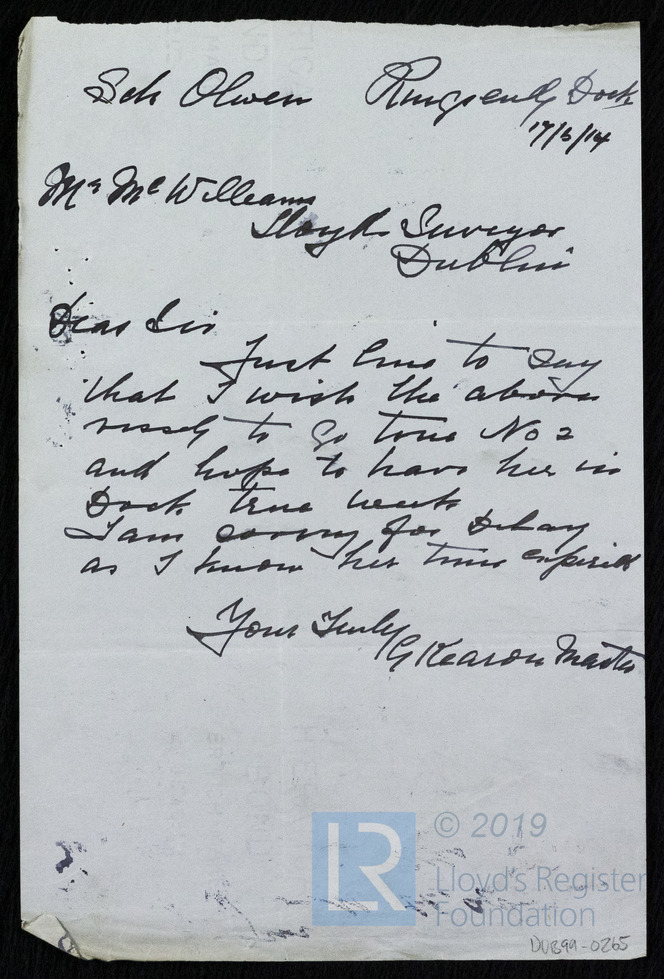 Sch Olwen Ringsend Dock
17/3/14
Mr Mc Williams
Lloyds Surveyor
Dublin
Dear Sir
Just line to say
that I wish the above
vessel to go No 2
and hope to have her in
Dock week
I am sorry for Delay
as I know her time expired
Yours Truly
G Kearon Master
LR
© 2019
Lloyd's Register
Foundation
DUB99-0265